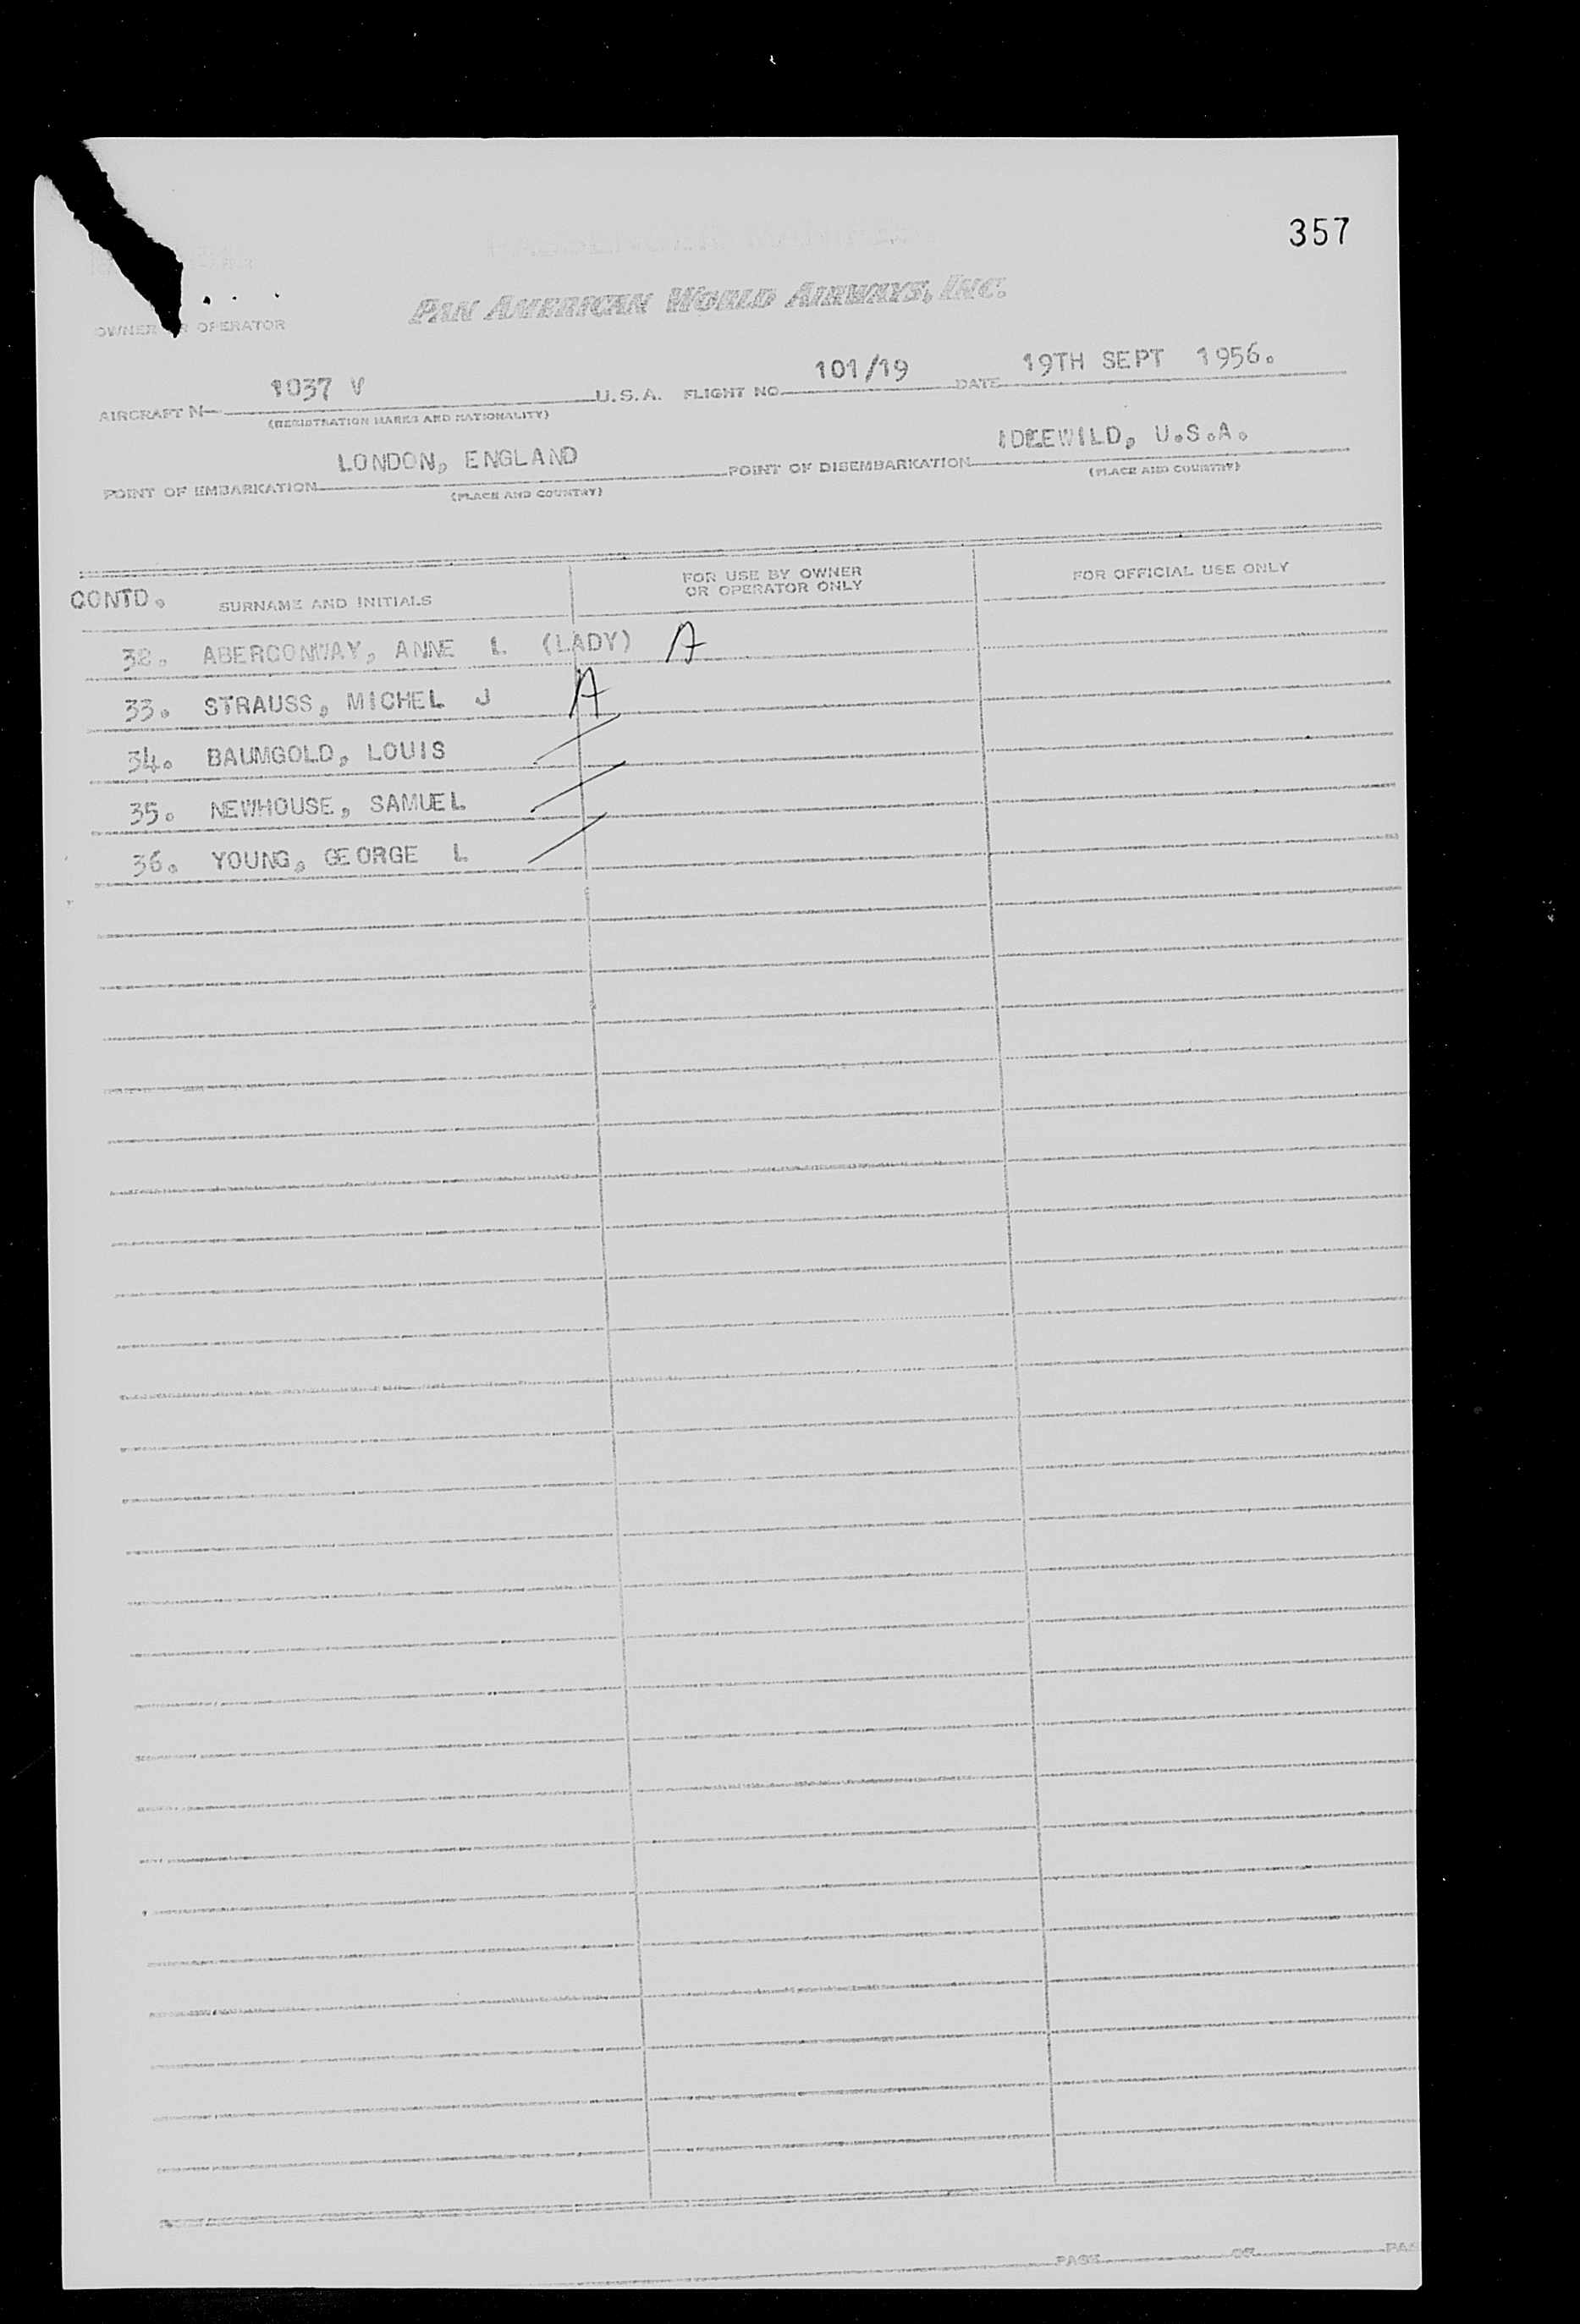 357
PAN AMERICAN WORLD AIRWAYS, INC.
OWNER OR OPERATOR
AIRCRAFT N— 1037 V U.S.A. FLIGHT NO 101/19 DATE 19TH SEPT 1956.
(REGISTRATION MARKS AND NATIONALITY)
POINT OF EMBARKATION LONDON, ENGLAND POINT OF DISEMBARKATION IDLEWILD, U.S.A.
(PLACE AND COUNTRY) (PLACE AND COUNTRY)
CONTD. SURNAME AND INITIALS FOR USE BY OWNER OR OPERATOR ONLY FOR OFFICIAL USE ONLY
32. ABERCONWAY, ANNE L (LADY) A
33. STRAUSS, MICHEL J A
34. BAUMGOLD, LOUIS
35. NEWHOUSE, SAMUEL
36. YOUNG, GEORGE L
PAGE OF PA